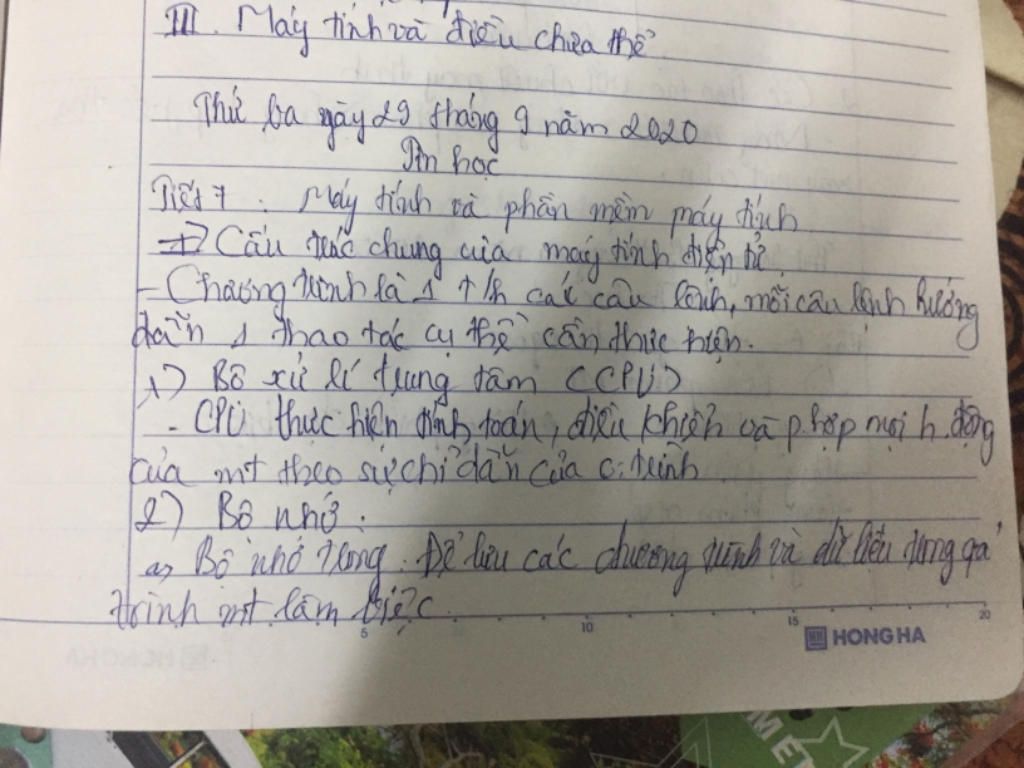 III. Máy tính và điều chưa thể
Thứ ba ngày 29 tháng 9 năm 2020
Tin học
Tiết 7: Máy tính và phần mền máy tính
I) Cấu trúc chung của máy tính điện tử.
- Chương trình là 1 t/h các câu lệnh, mỗi câu lệnh hướng
dẫn 1 thao tác cụ thể cần thực hiện.
1) Bộ xử lí trung tâm (CPU)
- CPU thực hiện tính toán, điều khiển và p.hợp mọi h.động
của mt theo sự chỉ dẫn của c.trình
2) Bộ nhớ:
a) Bộ nhớ trong: Để lưu các chương trình và dữ liệu trong quá
trình mt làm việc.
5 10 15 20
HONG HA
MET